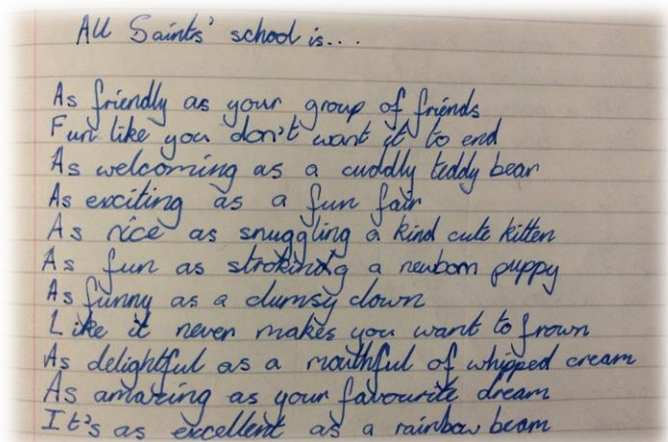 All Saints' school is...
As friendly as your group of friends
Fun like you don't want it to end
As welcoming as a cuddly teddy bear
As exciting as a fun fair
As nice as snuggling a kind cute kitten
As fun as stroking a newborn puppy
As funny as a clumsy clown
Like it never makes you want to frown
As delightful as a mouthful of whipped cream
As amazing as your favourite dream
It's as excellent as a rainbow beam